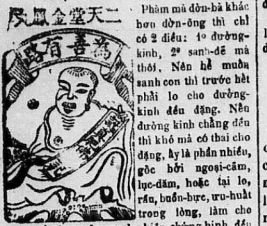 二天堂金鳳
為善有路
Phàm mà đờn-bà khác
hơn đờn-ông thì chỉ
có 2 điều: 1º đường-
kinh, 2º sanh-đẻ mà
thôi. Nên hề muốn
sanh con thì trước hết
phải lo cho đường-
kinh đều đặng. Nên
đường kinh chẳng đều
thì khó mà có thai cho
đặng, ấy là phần nhiều,
gốc bởi ngoại-cảm,
lục-dâm, hoặc tại lo,
rầu, buồn-bực, ưu-huất
trong lòng, làm cho